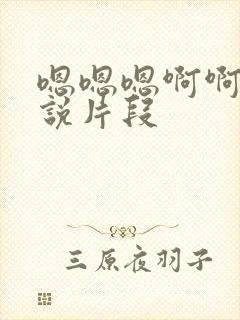 嗯嗯嗯啊啊
說片段
三原夜羽子